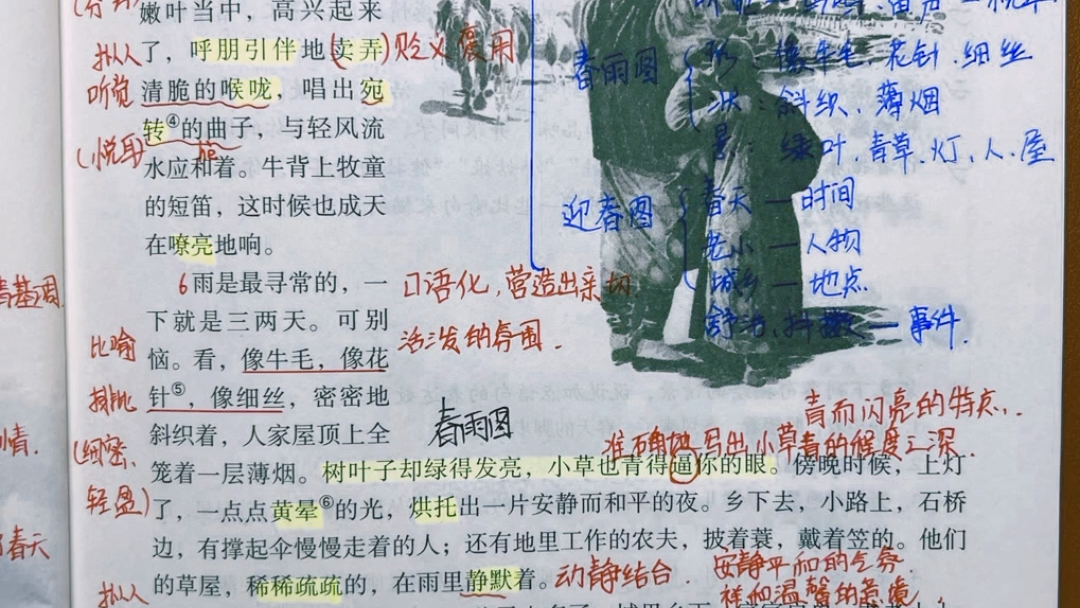 嫩叶当中，高兴起来
了，呼朋引伴地卖弄
清脆的喉咙，唱出宛
转④的曲子，与轻风流
水应和着。牛背上牧童
的短笛，这时候也成天
在嘹亮地响。
6雨是最寻常的，一
下就是三两天。可别
恼。看，像牛毛，像花
针⑤，像细丝，密密地
斜织着，人家屋顶上全
笼着一层薄烟。树叶子却绿得发亮，小草也青得逼你的眼。傍晚时候，上灯
了，一点点黄晕⑥的光，烘托出一片安静而和平的夜。乡下去，小路上，石桥
边，有撑起伞慢慢走着的人；还有地里工作的农夫，披着蓑，戴着笠的。他们
的草屋，稀稀疏疏的，在雨里静默着。
拟人
听觉
(悦耳)
hè
比喻
排比
(细密、
轻盈)
拟人
贬义褒用
口语化，营造出亲切
活泼的氛围.
春雨图
青而闪亮的特点
准确地写出小草青的程度之深.
动静结合.
安静平和的气氛.
祥和温馨的意境
春雨图
形：像牛毛、花针、细丝
状：斜织、薄烟
景：绿叶、青草、灯、人、屋
迎春图
春天—时间
老小—人物
城乡—地点
舒活、抖擞—事件.
青基调
情.
春天